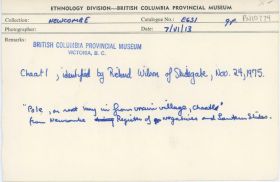 ETHNOLOGY DIVISION—BRITISH COLUMBIA PROVINCIAL MUSEUM
Collection: NEWCOMBE Catalogue No.: E631 gp. PN10779
Photographer: Date: 7/VI/13
Remarks:
BRITISH COLUMBIA PROVINCIAL MUSEUM
VICTORIA, B. C.
Chaatl, identified by Richard Wilson of Skidegate, Nov. 24, 1975.
"Pole, on west way in from main village, Chaatl"
from Newcombe Register of negatives and Lantern Slides.